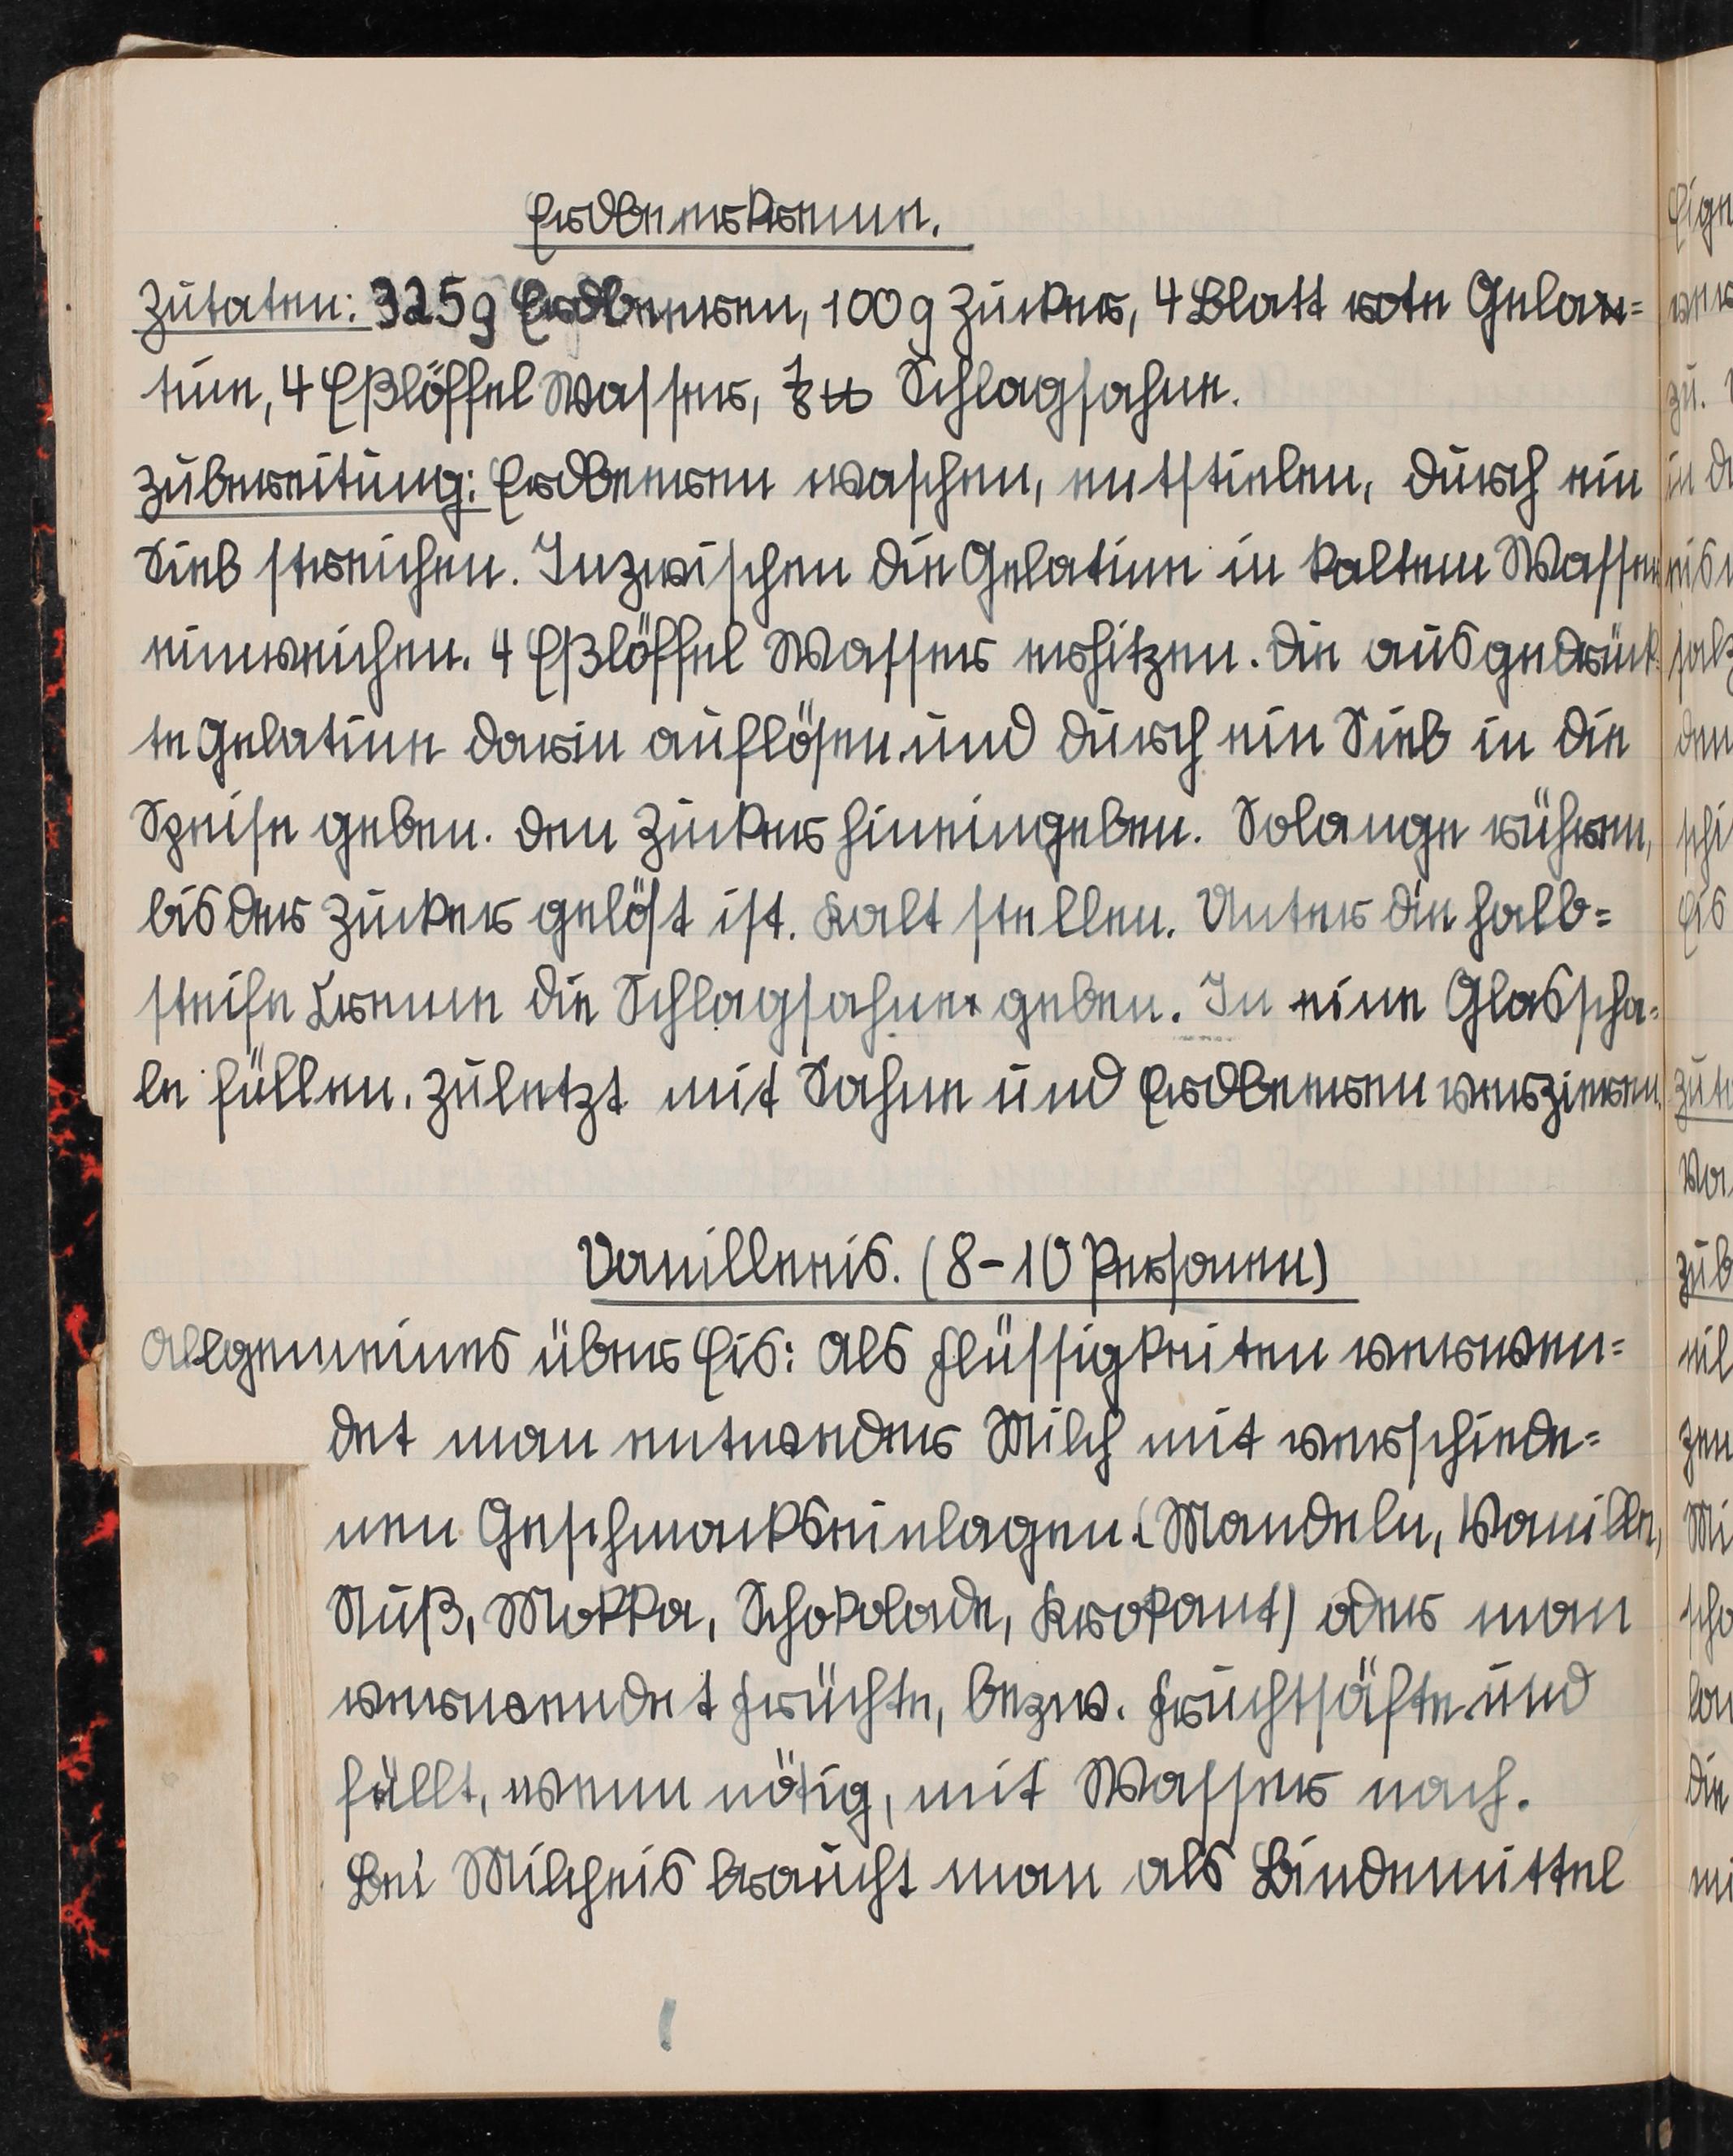 Erdbeerkreme.
Zutaten: 325g Erdbeeren, 100 g Zucker, 4 Blatt rote Gela=
tine, 4 Eßlöffel Wasser, 1/8 ℔ Schlagsahne.
Zubereitung: Erdbeeren waschen, entstielen, durch ein
Sieb streichen. Inzwischen die Gelatine in kaltem Wasser
einweichen. 4 Eßlöffel Wasser erhitzen. Die ausgedrück-
te Gelatine darin auflösen und durch ein Sieb in die
Speise geben. Den Zucker hineingeben. Solange rühren,
bis der Zucker gelöst ist. Kalt stellen. Unter die halb=
steife Kreme die Schlagsahne geben. In eine Glasscha=
le füllen. Zuletzt mit Sahne und Erdbeeren verzieren.
Vanilleeis. (8-10 Personen)
Allgemeines über Eis: Als Flüssigkeiten verwen=
det man entweder Milch mit verschiede=
nen Geschmackseinlagen (Mandeln, Vanille,
Nuß, Mokka, Schokolade, Krokant) oder man
verwendet Früchte, bezw. Fruchtsäfte und
füllt, wenn nötig, mit Wasser nach.
Bei Milcheis braucht man als Bindemittel